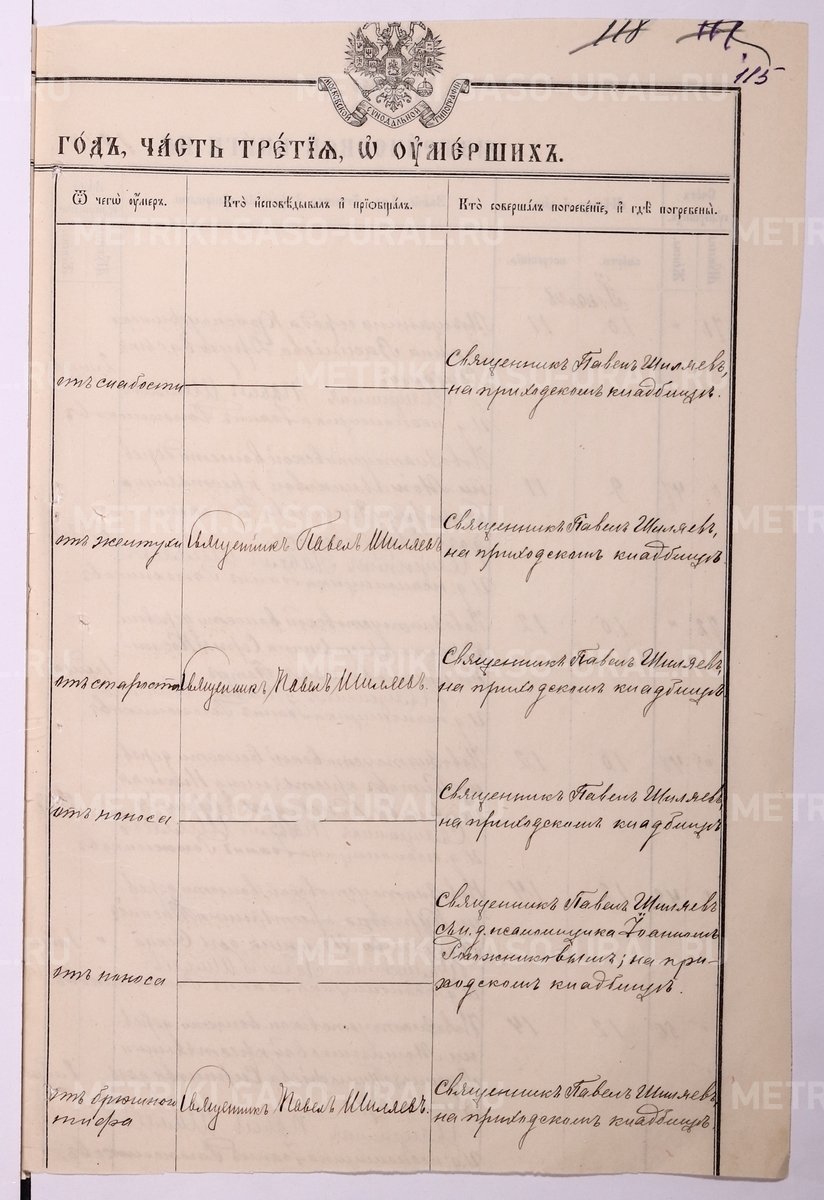 118
115
МОСКОВСКОЙ СѴНОДАЛЬНОЙ ТИПОГРАФІИ
ГО́ДЪ, ЧА́СТЬ ТРЕ́ТІѦ, Ѡ҆ ОУ҆МЕ́РШИХЪ.
Ѿ чегѡ̀ оу҆́меръ.
Кто̀ и҆сповѣ́дывалъ и҆ прїѡбща́лъ.
Кто̀ соверша́лъ погребе́нїе, и҆ гдѣ̀ погребены̀.
отъ слабости
Священникъ Павелъ Шиляевъ,
на приходскомъ кладбищѣ.
отъ желтухи
Священникъ Павелъ Шиляевъ
Священникъ Павелъ Шиляевъ,
на приходскомъ кладбищѣ
отъ старости
Священникъ Павелъ Шиляевъ.
Священникъ Павелъ Шиляевъ,
на приходскомъ кладбищѣ
отъ поноса
Священникъ Павелъ Шиляевъ
на приходскомъ кладбищѣ
отъ поноса
Священникъ Павелъ Шиляевъ
съ и. д. псаломщика Іоанномъ
на при-
ходскомъ кладбищѣ.
отъ брюшного
тифа
Священникъ Павелъ Шиляевъ.
Священникъ Павелъ Шиляевъ,
на приходскомъ кладбищѣ.
METRIKI.GASO-URAL.RU